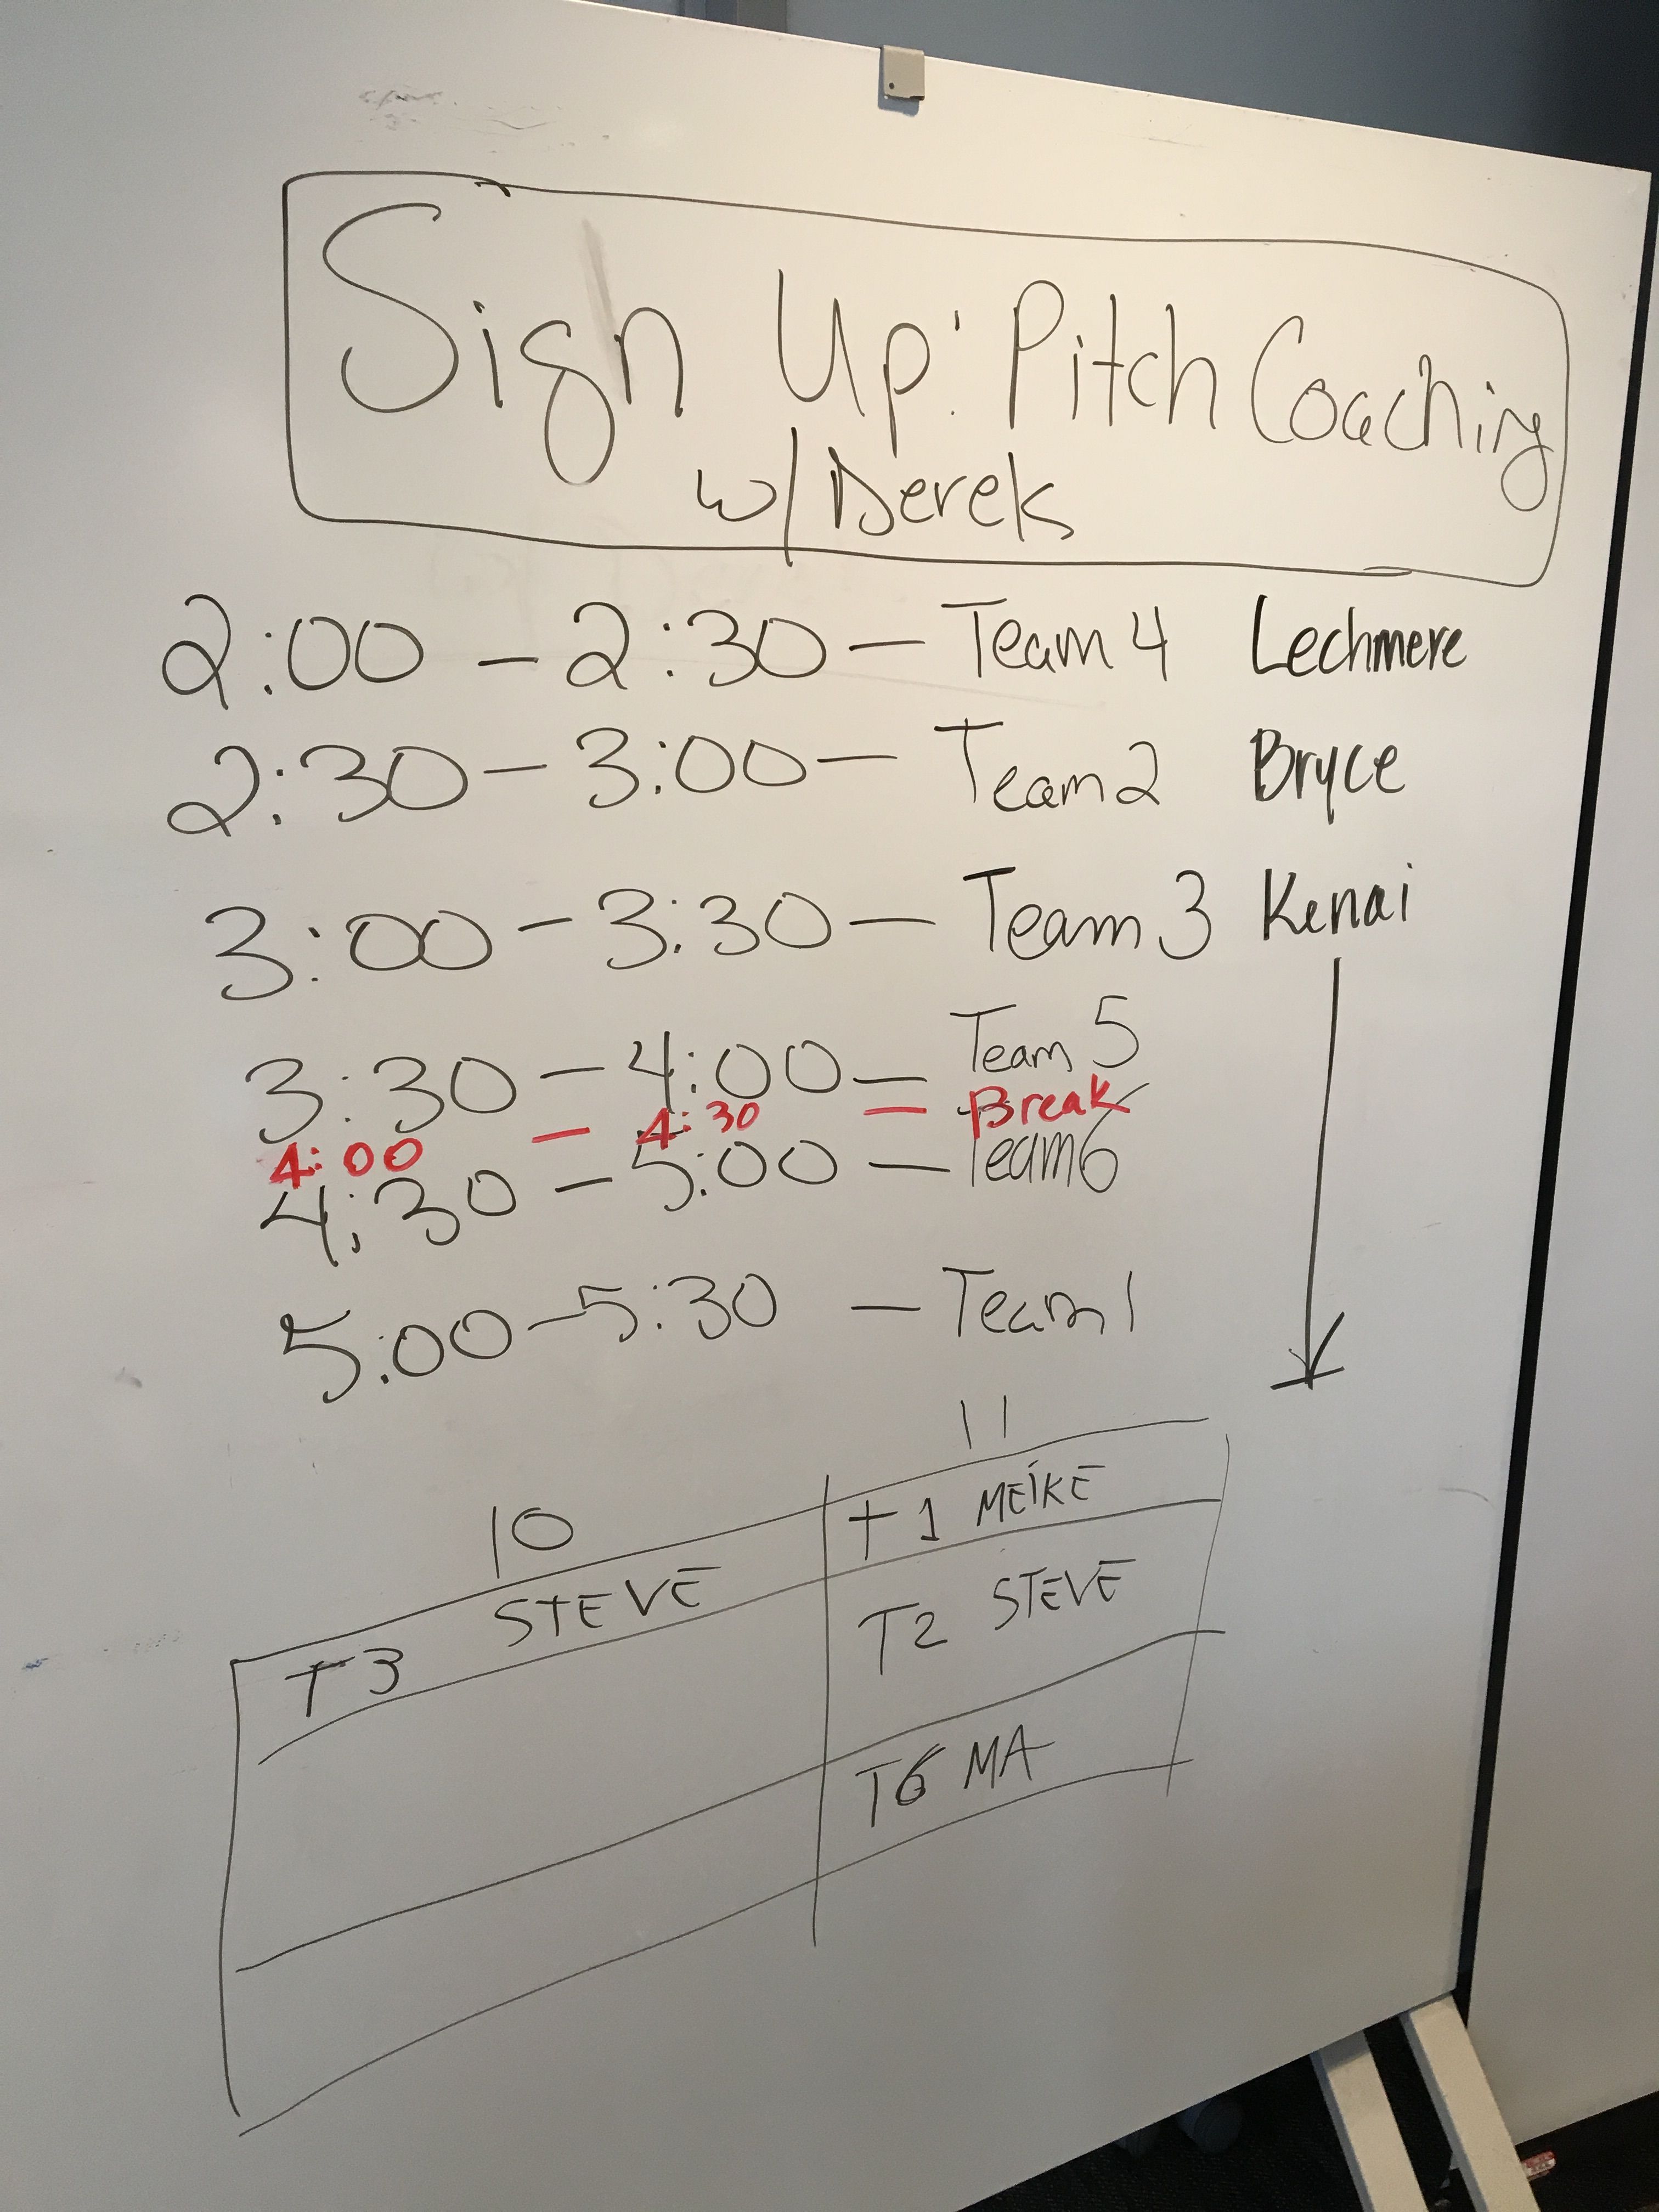 Sign Up: Pitch Coaching
w/ Derek
2:00 - 2:30 - Team 4 Lechmere
2:30 - 3:00 - Team 2 Bryce
3:00 - 3:30 - Team 3 Kenai
3:30 - 4:00 - Team 5
4:00 - 4:30 - Break
4:30 - 5:00 - Team 6
5:00 - 5:30 - Team 1
10 11
T3 STEVE T1 MEIKE
T2 STEVE
T6 MA